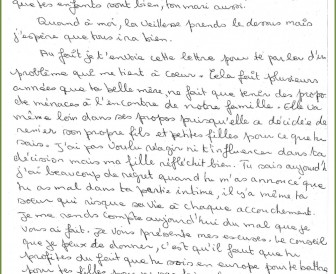 que tes enfants vont bien, ton mari aussi.
Quand à moi, la vieillesse prends le dessus mais
j'espère que tous ira bien.
Au fait je t'envoie cette lettre pour te parler d'un
problème qui me tient à coeur. Cela fait plusieurs
années que ta belle mère ne fait que tenir des propos
de menaces à l'encontre de notre famille. Elle va
même loin dans ses propos puisqu'elle a décidé de
renier son propre fils et petites filles pour ce que tu
sais. J'ai pas voulu réagir ni t'influencer dans ta
décision mais ma fille réfléchit bien. Tu sais aujourd'h
j'ai beaucoup de regret quand tu m'as annoncé que
tu as mal dans ta partie intime, il y'a même ta
soeur qui risque sa vie à chaque accouchement.
Je me rends compte aujourd'hui du mal que je
vous ai fait. Je vous présente mes excuses. Le conseil
que je peux te donner, c'est qu'il faut que tu
profites du fait que tu sois en europe pour te battre
pour tes filles